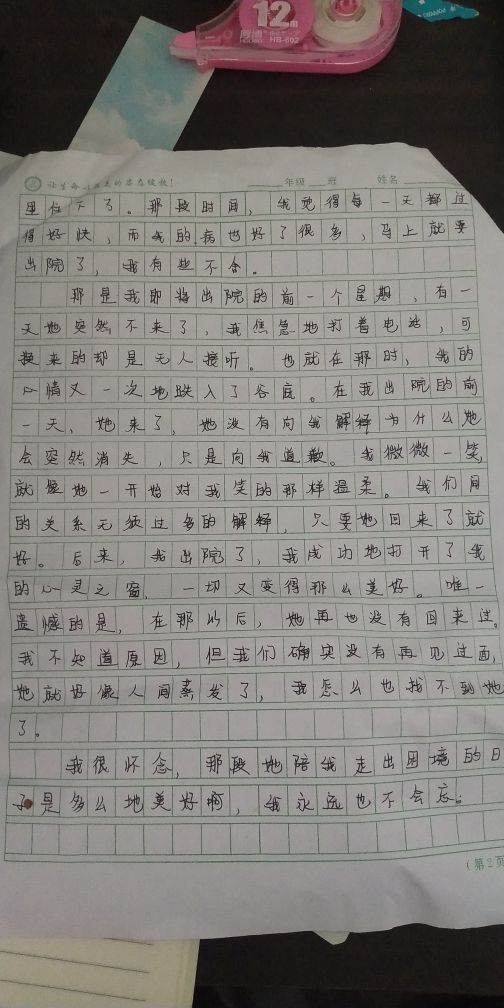 12m
HB-602
让生命以
的姿态绽放！
年级 班 姓名
里住下了。那段时间，我觉得每一天都过
得好快，而我的病也好了很多，马上就要
出院了，我有些不舍。
那是我即将出院的前一个星期，有一
天她突然不来了，我焦急地打着电话，可
换来的却是无人接听。也就在那时，我的
心情又一次地跌入了谷底。在我出院的前
一天，她来了，她没有向我解释为什么她
会突然消失，只是向我道歉。我微微一笑，
就像她一开始对我笑的那样温柔。我们间
的关系无须过多的解释，只要她回来了就
好。后来，我出院了，我成功地打开了我
的心灵之窗，一切又变得那么美好。唯一
遗憾的是，在那以后，她再也没有回来过。
我不知道原因，但我们确实没有再见过面，
她就好像人间蒸发了，我怎么也找不到她
了。
我很怀念，那段她陪我走出困境的日
子是多么地美好啊，我永远也不会忘。
（第2页